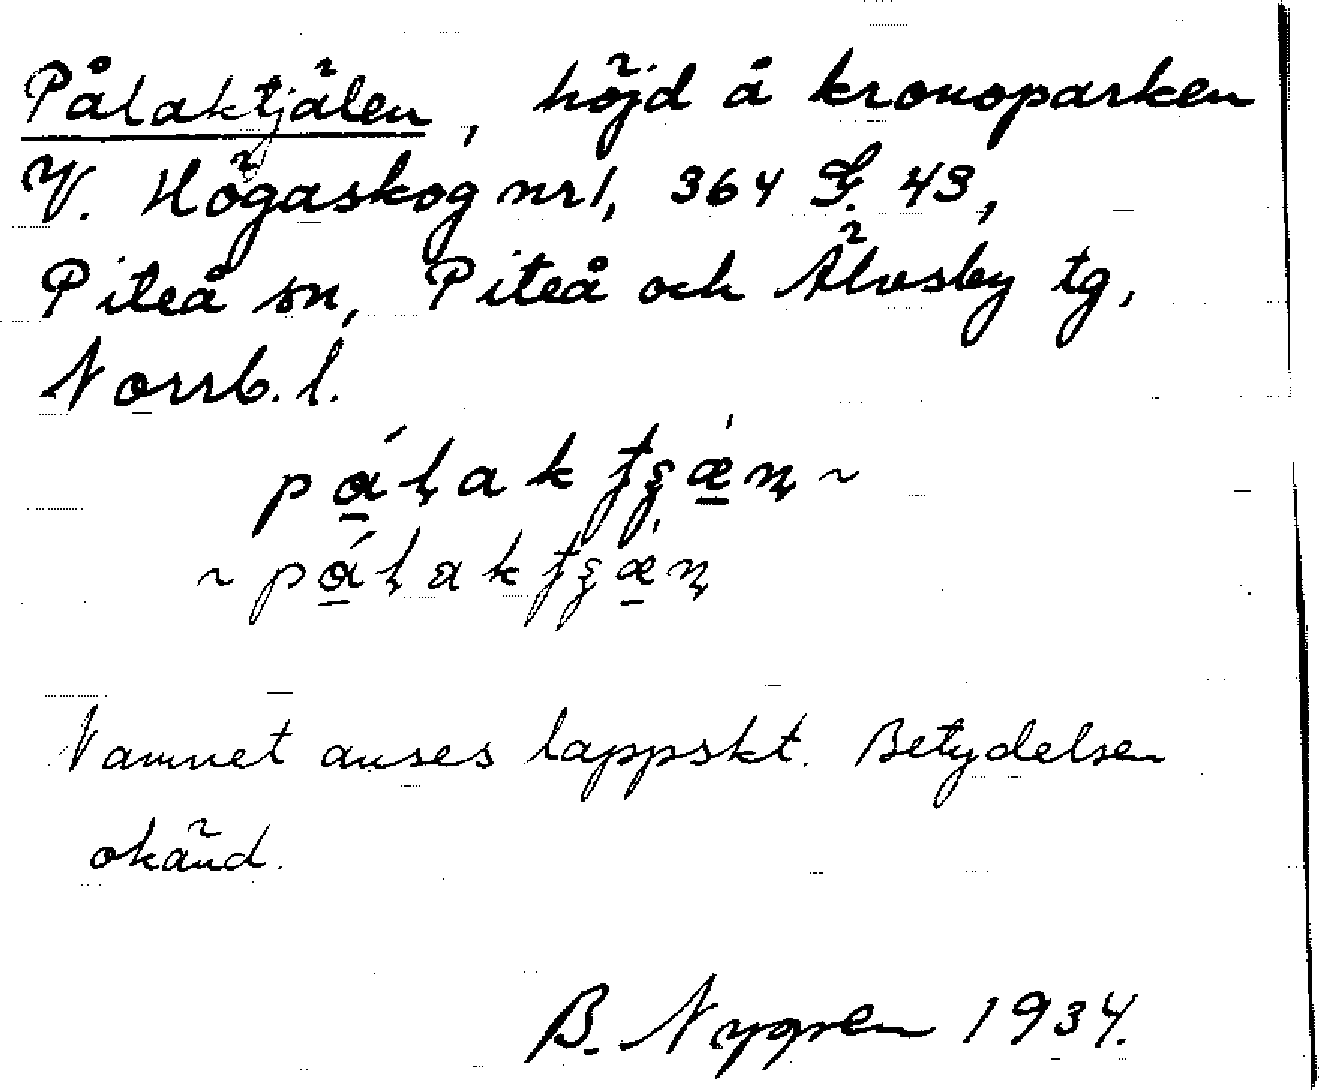 Pålaktjälen, höjd å kronoparken
V. Högaskog nr 1, 364 G. 43,
Piteå sn, Piteå och Älvsby tg,
Norrb. l.
Namnet anses lappskt. Betydelsen
okänd.
B. Nygren 1934.